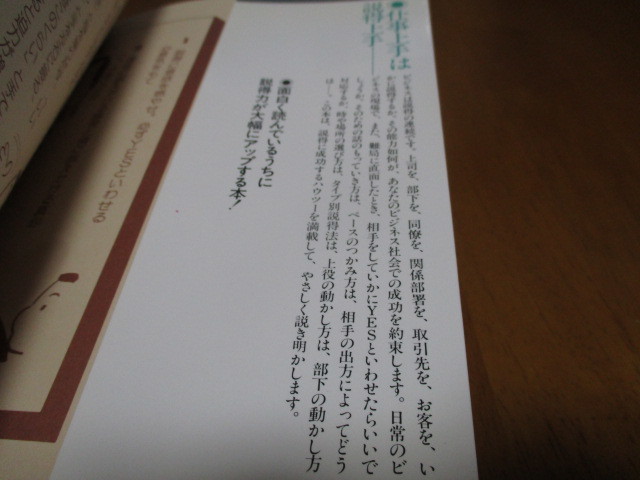 ●仕事上手は
説得上手――
ビジネスは説得の連続です。上司を、部下を、同僚を、関係部署を、取引先を、お客を、い
かに説得するか、その能力如何が、あなたのビジネス社会での成功を約束します。日常のビ
ジネスの現場で、また、難局に直面したとき、相手をしていかにYESといわせたらいいで
しょうか。そのための話のもっていき方は、ペースのつかみ方は、相手の出方によってどう
対応するか、時や場所の選び方は、タイプ別説得法は、上役の動かし方は、部下の動かし方
は――。この本は、説得に成功するハウツーを満載して、やさしく説き明かします。
●面白く読んでいるうちに
説得力が大幅にアップする本！
YESといわせる